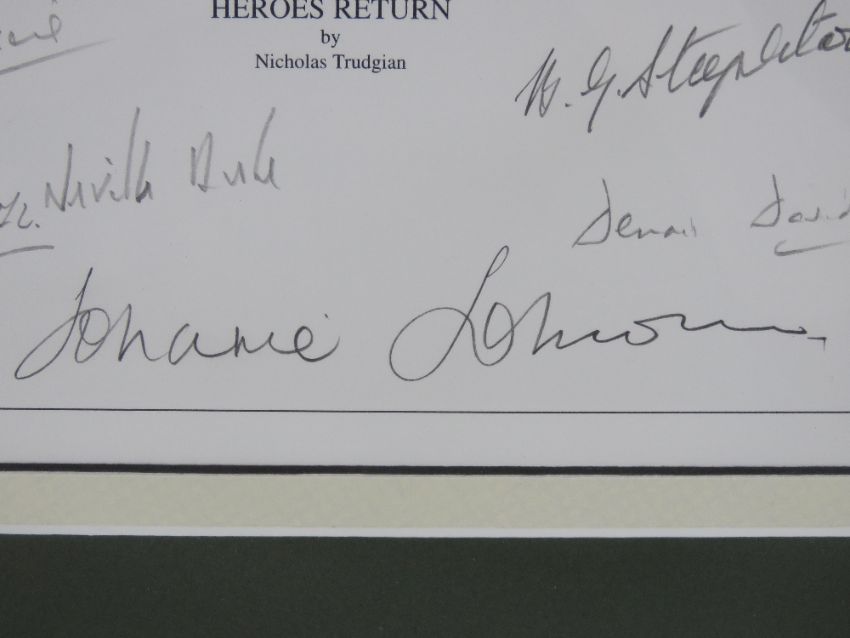 HEROES RETURN
by
Nicholas Trudgian
W. G. Steepleton
Neville Duke
Dennis David
Johnnie Johnson